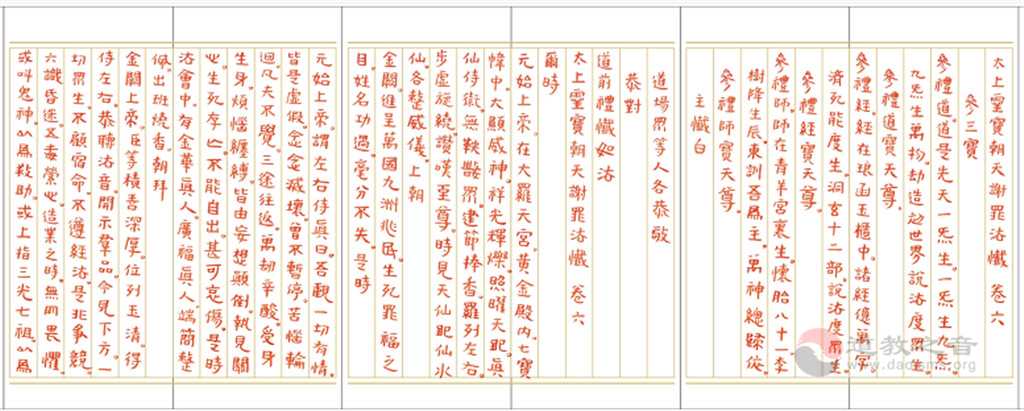 太上靈寶朝天謝罪法懺 卷六
參三寶
參禮道。道是先天一炁生。一炁生九炁。
九炁生萬物。劫造起世界。說法度眾生。
參禮道寶天尊。
參禮經。經在琅函玉櫃中。諸經億萬字。
濟死能度生。洞玄十二部。說法度眾生
參禮經寶天尊。
參禮師。師在青羊宮裏生。懷胎八十一年
樹降生辰。東訓吾為主。萬神總歸依。
參禮師寶天尊。
主懺白
道場眾等人各恭敬
恭對
道前禮懺如法
太上靈寶朝天謝罪法懺 卷六
爾時
元始上帝。在大羅天宮。黃金殿內。七寶
幃中。大顯威神。祥光爍爍。照曜天地。真
仙侍衛。無鞅聖眾。建節捧香。羅列左右。
步虛旋繞。讚嘆至尊。時見天仙地仙水
仙。各整威儀。上朝
金闕。進呈萬國九洲兆民。生死罪福之
目。姓名功過。毫分不失。是時
元始上帝。謂左右侍真曰。吾觀一切有情。
皆是虛假。念念滅壞。曾不暫停。苦惱輪
迴。凡夫不覺。三途往返。萬劫辛酸。受身
生身。煩惱纏縛。皆由妄想顛倒。執見關
心。生死存亡。不能自出。甚可哀傷。是時
法會中。有金華真人。廣福真人。端簡整
佩。出班燒香。朝拜
金闕上帝。臣等積善深厚。位列玉清。得
侍左右。恭聽法音。開示羣品。今見下方。一
切眾生。不顧宿命。不遵經法。是非爭競。
六識昏迷。五毒縈心。造業之時。無所畏懼。
或呌鬼神。以為救助。或上指三光七祖。以為
道教之音
www.daoisms.org